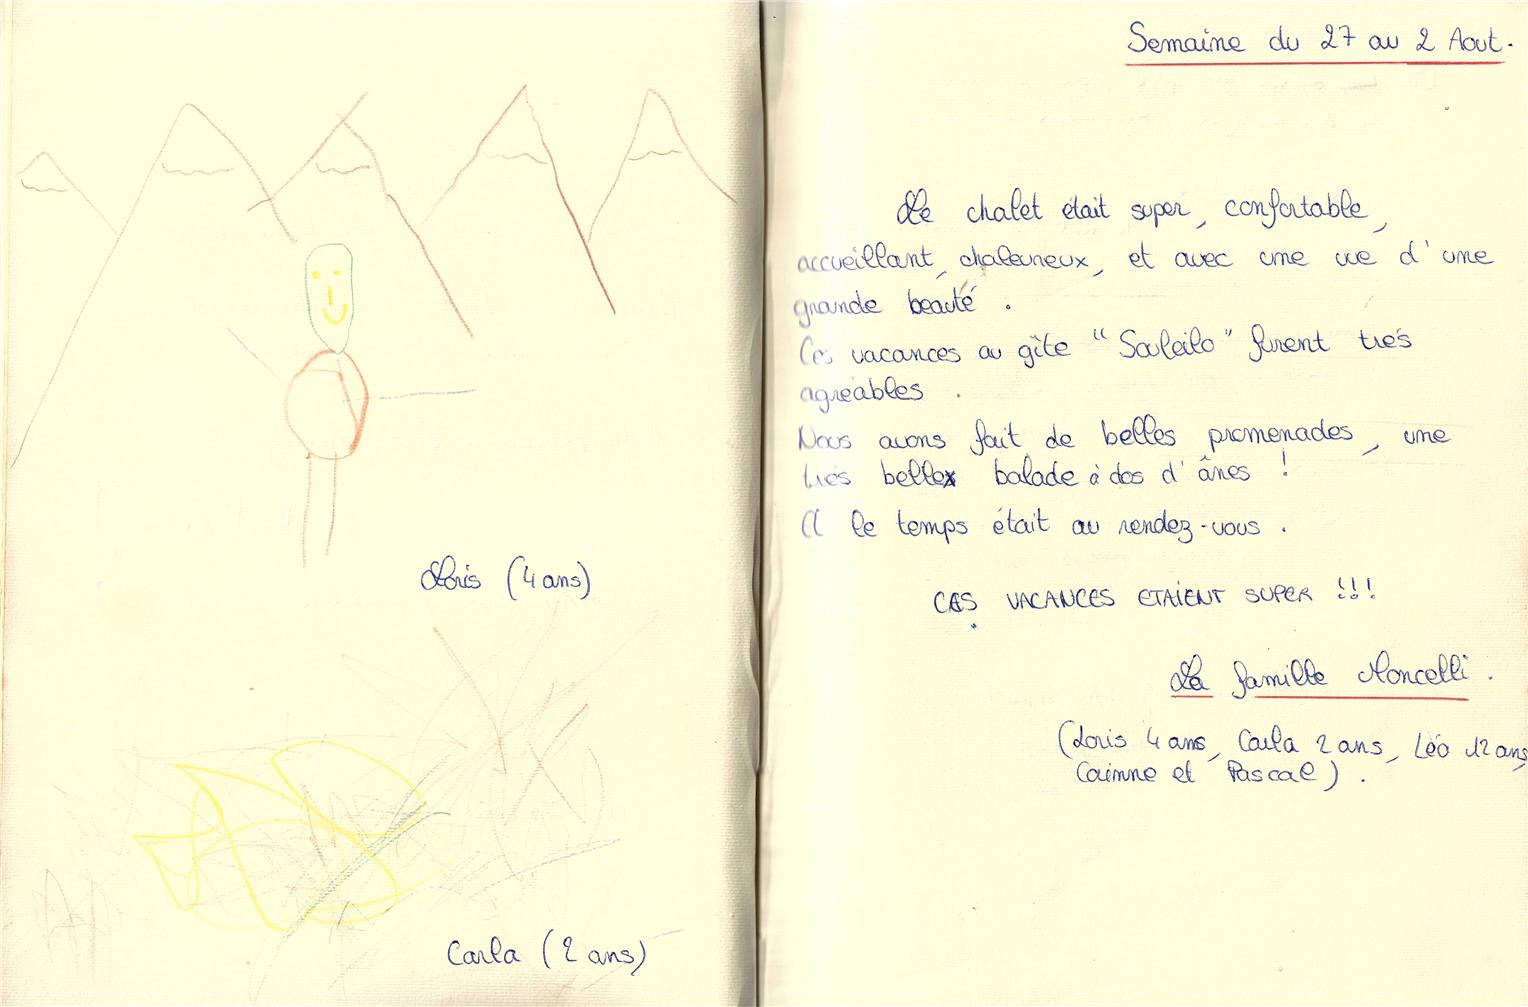 Loris (4 ans)
Carla (2 ans)
Semaine du 27 au 2 Aout.
Le chalet était super, confortable,
accueillant, chaleureux, et avec une vue d'une
grande beauté.
Ces vacances au gîte "Souleilo" furent très
agréables.
Nous avons fait de belles promenades, une
très belle balade à dos d'ânes !
Et le temps était au rendez-vous.
CES VACANCES ETAIENT SUPER !!!
La famille Moncelli.
(Loris 4 ans, Carla 2 ans, Léo 12 ans,
Corinne et Pascal).